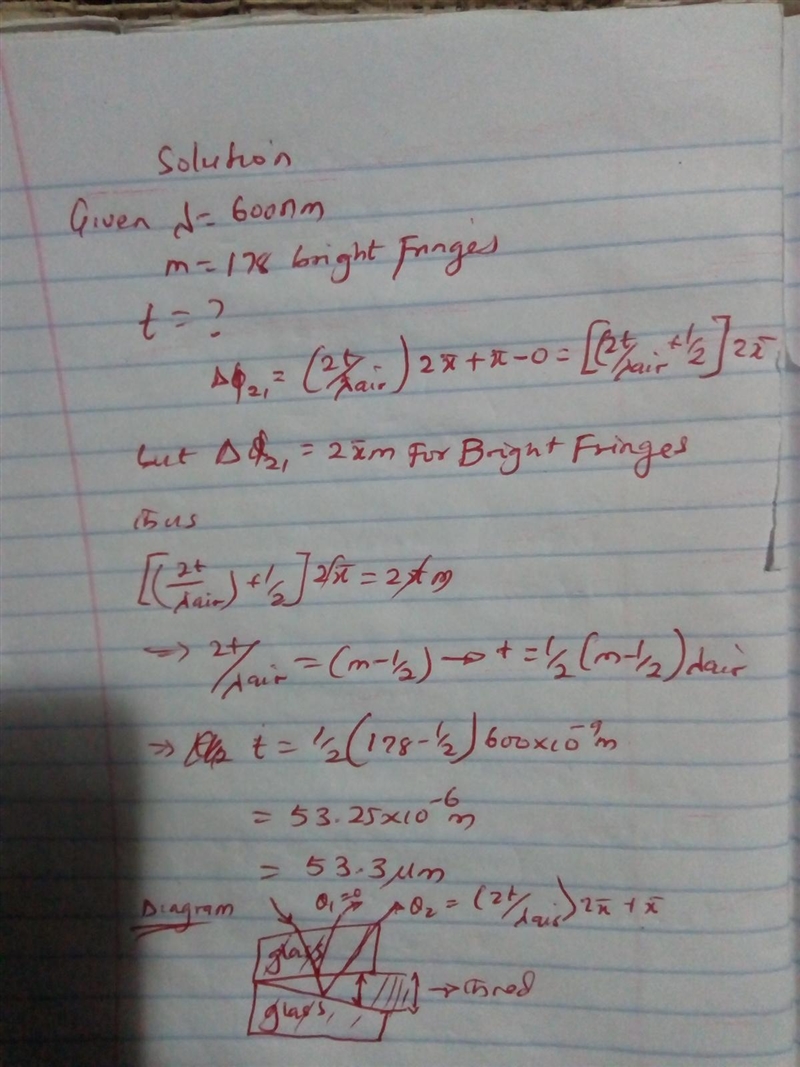 Solution
Given λ = 600nm
m = 178 bright Fringes
t = ?
Δϕ₂₁ = (2t/λair) 2π + π - 0 = [(2t/λair + 1/2] 2π
but Δϕ₂₁ = 2πm For Bright Fringes
Thus
[(2t/λair) + 1/2] 2π = 2πm
⇒ 2t/λair = (m - 1/2) → t = 1/2 (m - 1/2) λair
⇒ t = 1/2 (178 - 1/2) 600x10⁻⁹m
= 53.25x10⁻⁶m
= 53.3μm
Diagram θ₁=0 θ₂ = (2t/λair) 2π + π
glass
glass → Thread